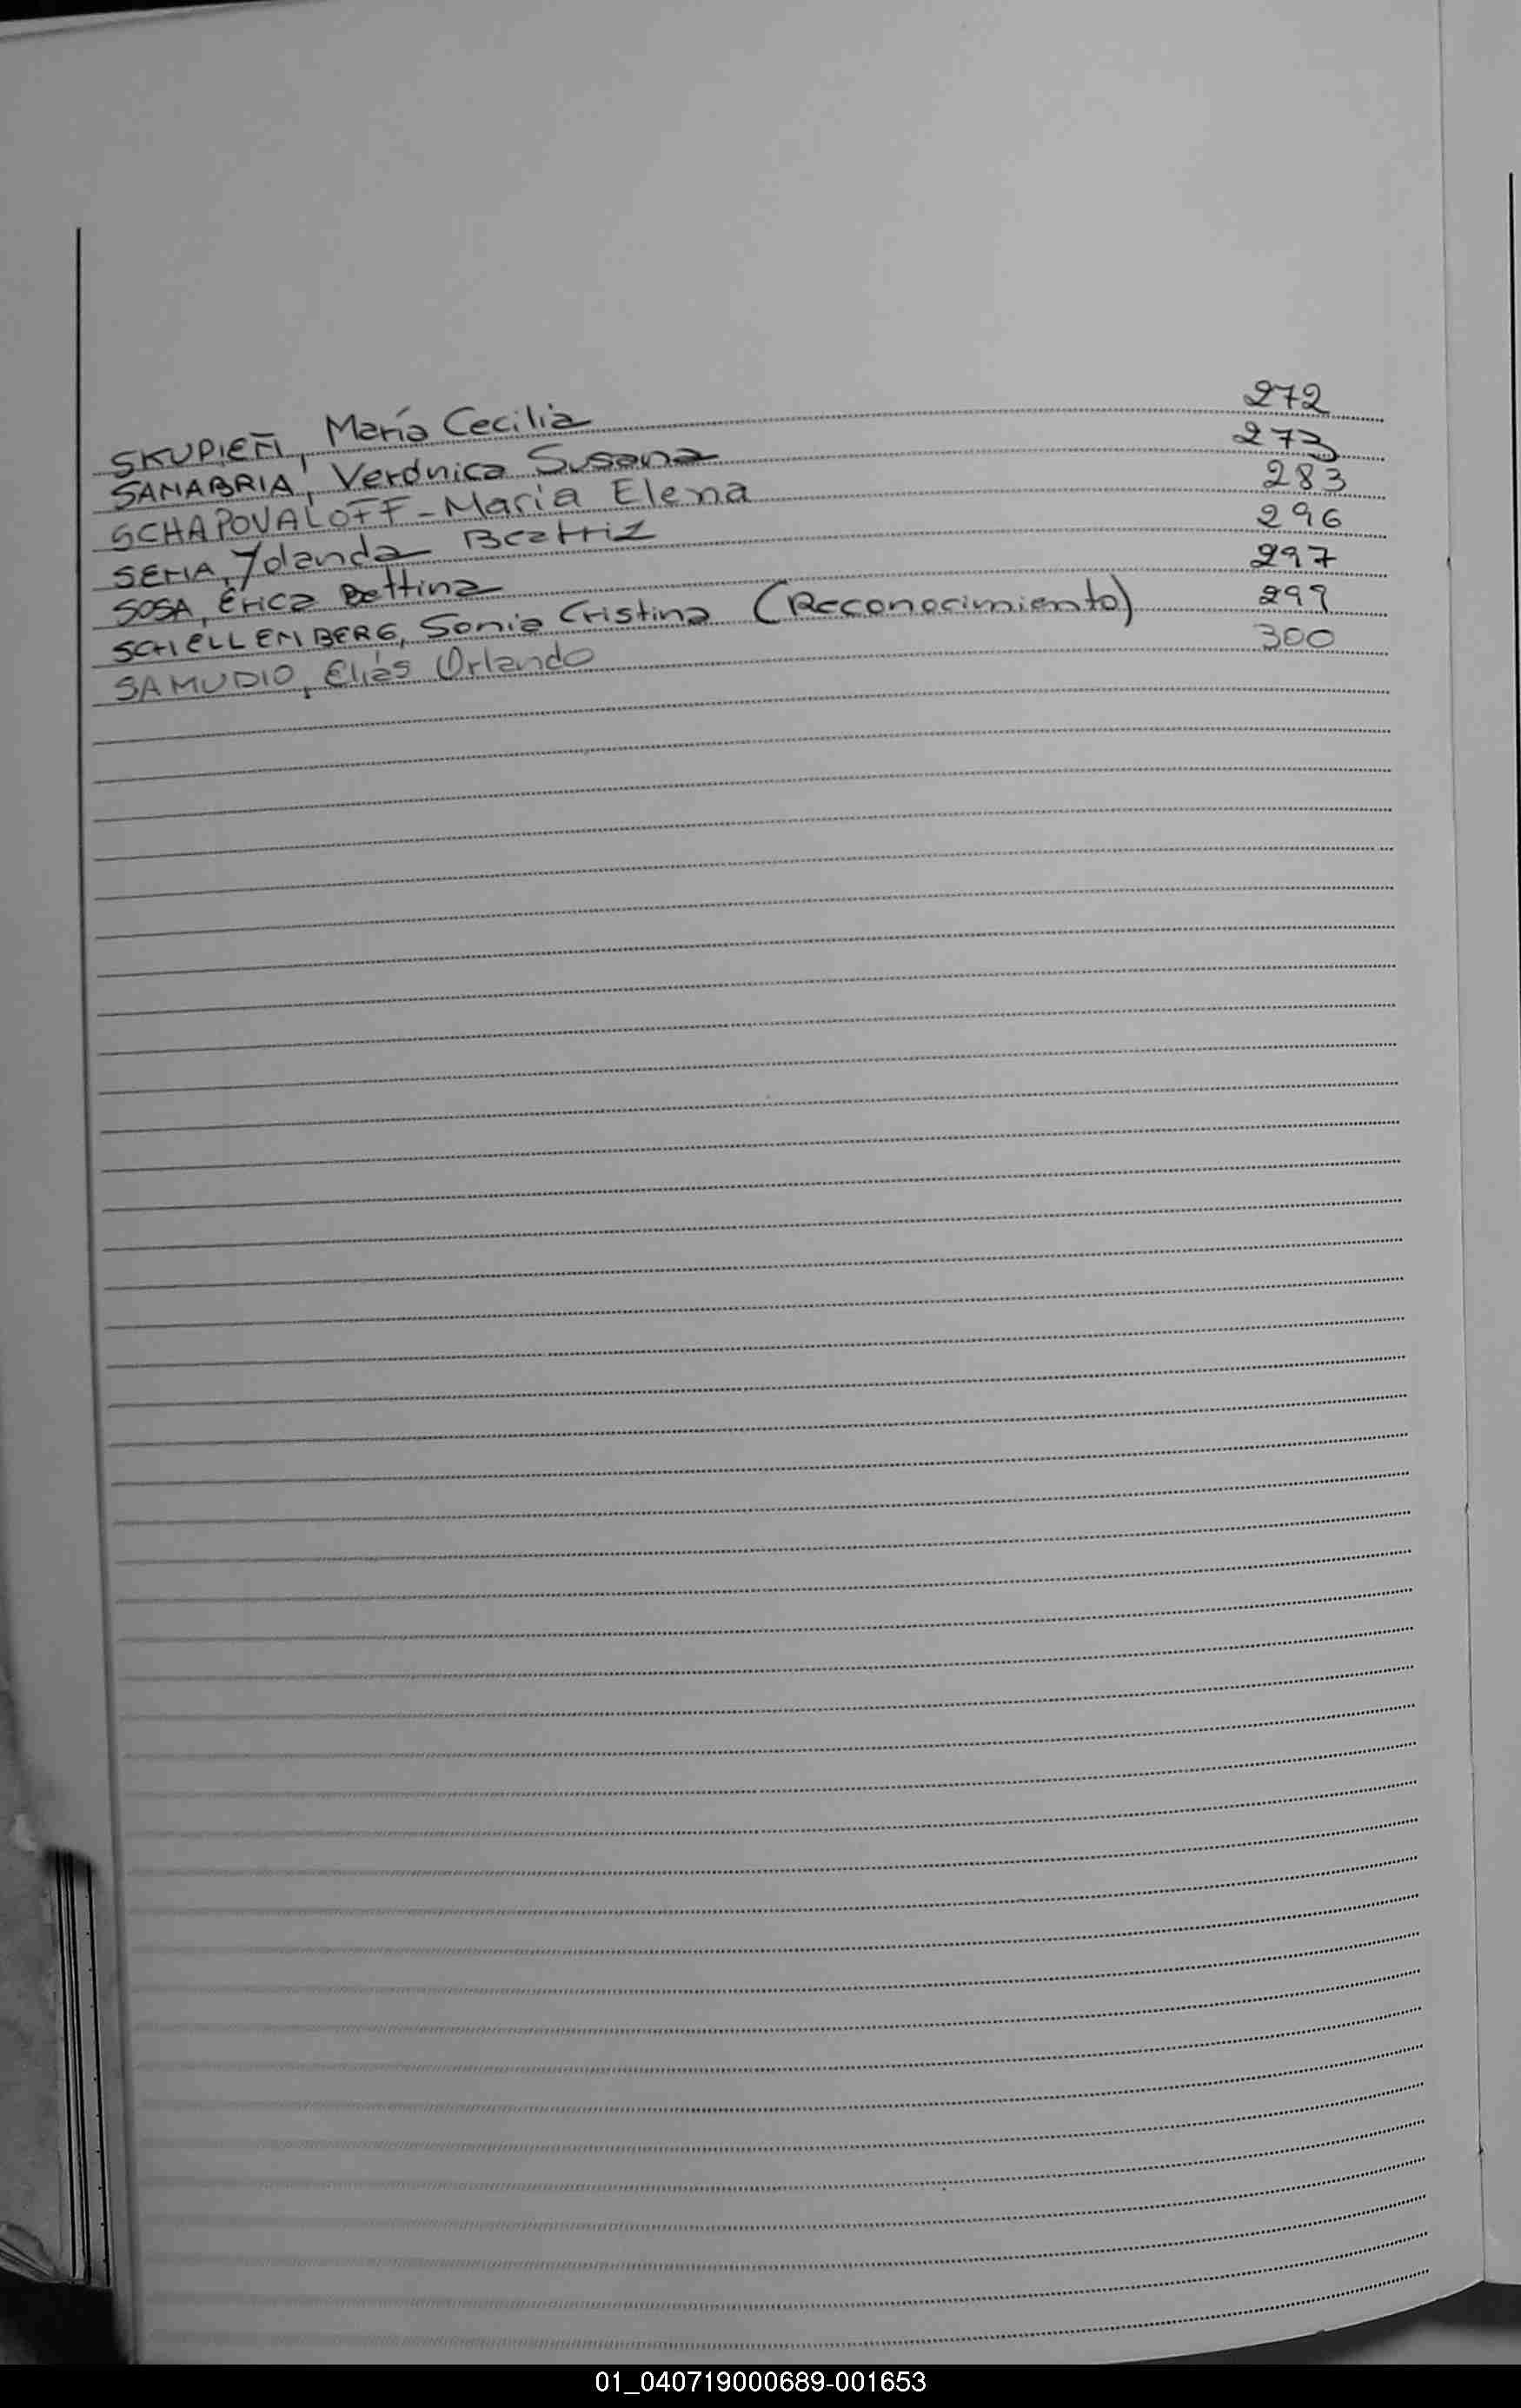 SKUPIEÑ, María Cecilia 272
SANABRIA, Verónica Susana 273
SCHAPOVALOFF - María Elena 283
SENA, Yolanda Beatriz 296
SOSA, Erica Bettina 297
SCHELLENBERG, Sonia Cristina (Reconocimiento) 299
SAMUDIO, Eliás Orlando 300
01_040719000689-001653